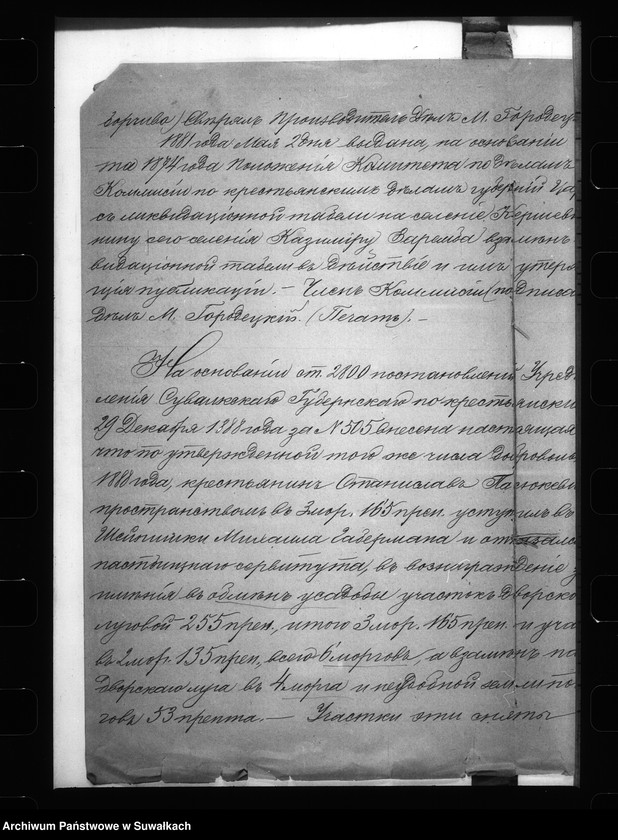 Свѣрялъ Производитель Дѣлъ М. Городец
1881 года Мая 2 дня выдана, на основаніи
та 1874 года Положенія Комитета по Дѣламъ
Коммисіи по крестьянскимъ дѣламъ губерній Цар
съ ликвидаціонной табели на селеніе
нину сего селенія Казиміру Заремба взамѣнъ
видаціонной табели въ Дѣйствіе и имъ утеря
ція публикаціи. — Членъ Коммисіи (подписа
Дѣлъ М. Городецкій. (Печать). —
На основаніи ст. 2100 постановленій Учред
ленія Сувалкскаго Губернскаго по крестьянски
29 Декабря 1888 года за N 505 внесена настоящая
что по утвержденной того же числа добровольн
1888 года, крестьянинъ Станиславъ
пространствомъ въ 3 мор. 165 прен. уступилъ въ
Михаила Габермана и отказался
пастбищнаго сервитута, въ вознагражденіе
имѣнія въ обмѣнъ усадьбы участокъ Дворско
луговой 255 прен., итого 3 мор. 165 прен. и уча
въ 2 мор. 135 прен., всего 6 морговъ, а взамѣнъ па
Дворскаго луга въ 4 морга и неудобной земли по
говъ 53 прента. — Участки эти сняты
Archiwum Państwowe w Suwałkach